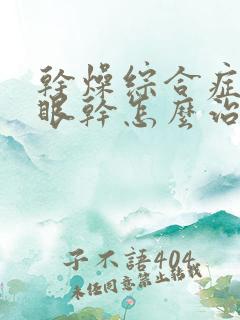 幹燥綜合症
眼幹怎麼治
子不語404
未經同意禁止轉載